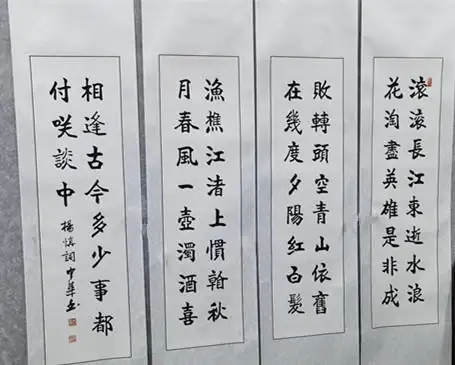 滾滾長江東逝水浪
花淘盡英雄是非成
敗轉頭空青山依舊
在幾度夕陽紅白髮
漁樵江渚上慣秋
月春風一壺濁酒喜
相逢古今多少事都
付咲談中
楊慎詞中華书